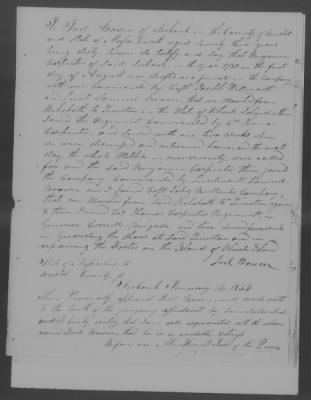 I Joel Bowen of Seekonk in the County of Bristol
and State of Massachusetts aged Seventy two years
being duly sworn do testify and say that Benjamin
Carpenter of said Seekonk in the year 1780 on the first
day of August was drafted as a private in the Company
with me Commanded by Capt Joseph Willmarth
and Lieut Samuel Brown, that we Marched from
Rehoboth to Tiverton in the State of Rhode Island & then
Joined the Regiment Commanded by Col Thomas
Carpenter and served with me two weeks when
we were dismissed and returned home and the next
day, the whole Militia in our vicinity were called
for and the said Benjamin Carpenter then joined
the Company Commanded by Lieutenant Samuel
Brown and I Joined Capt Bullocks Company
that we Marched from said Rehoboth to Tiverton again
& then Joined Col Thomas Carpenters Regiment in
Governor Cornells Brigade and
in Guarding the Shores at said Tiverton and in
repairing the Forts on the Island of Rhode Island
Joel Bowen
State of Massachusetts
Bristol County ss
Seekonk January 14 1834
Then Personally appeared Joel Bowen and made oath
to the truth of the foregoing affidavit by him Subscribed
and I hereby certify that I am well acquainted with the above
named Joel Bowen that he is a credible witness
Before me Justice of the Peace